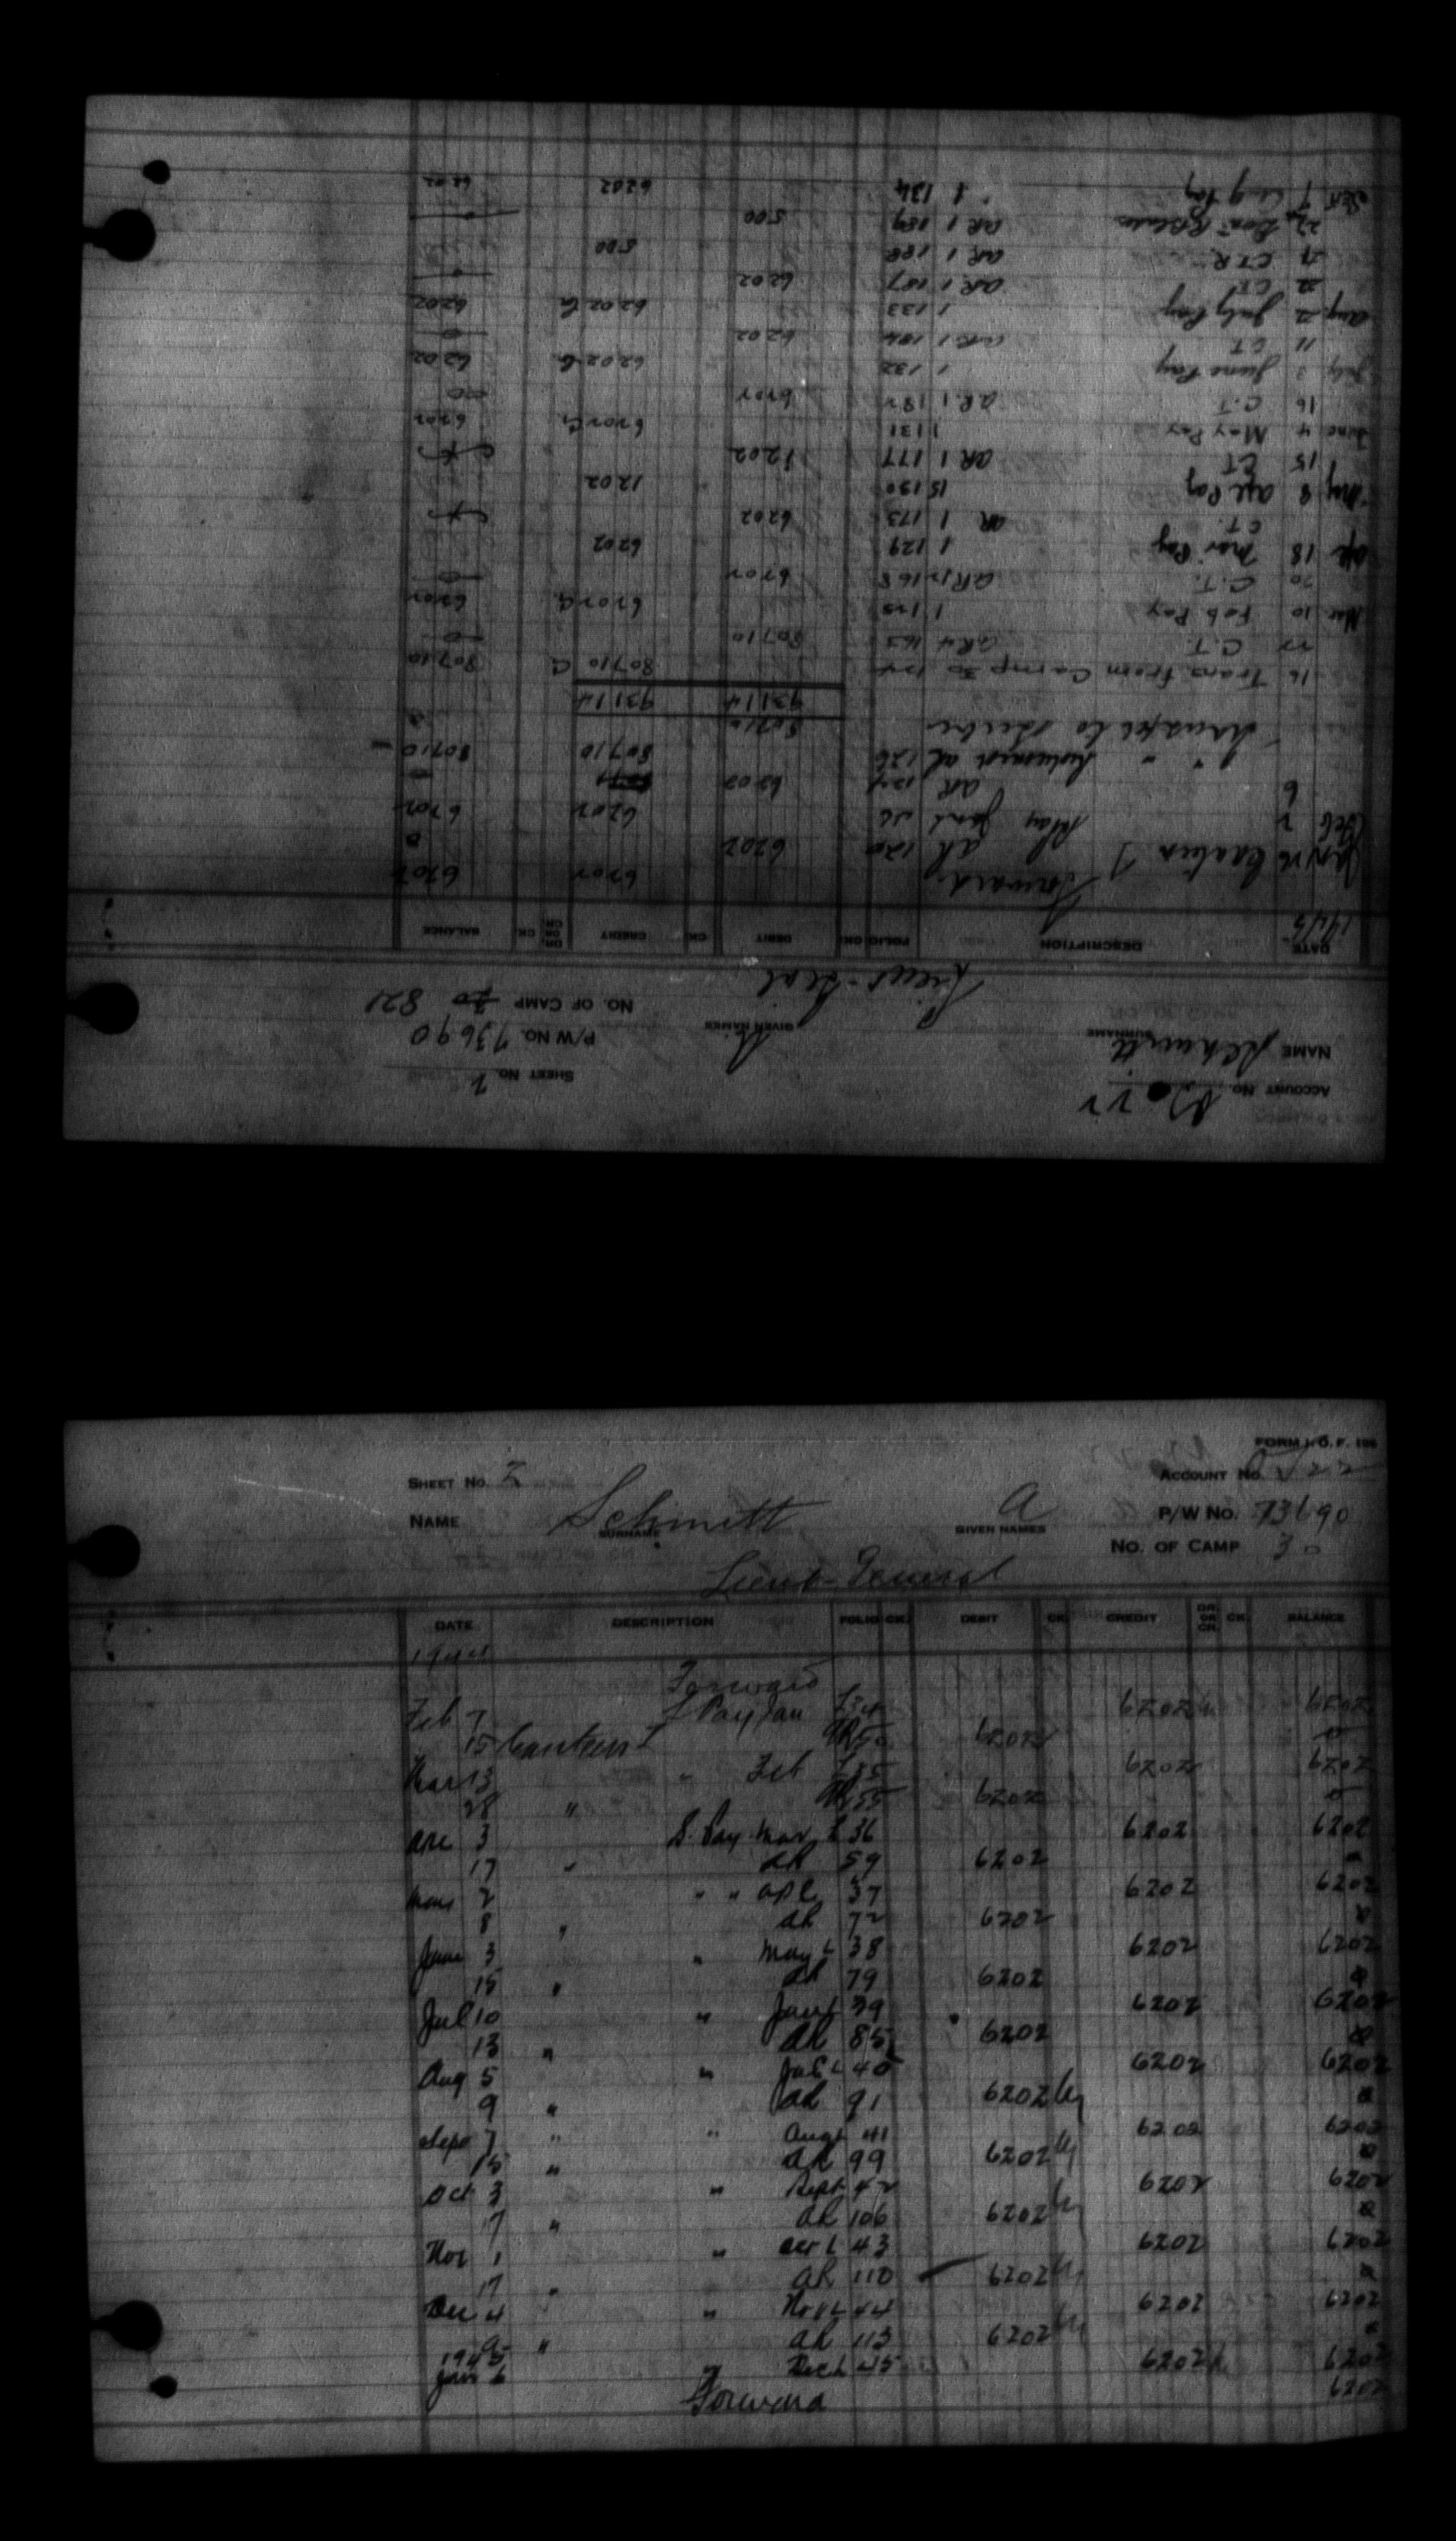 ACCOUNT NO.
SHEET NO. 2
NAME Schmitt A
P/W NO. 73690
SURNAME GIVEN NAMES
NO. OF CAMP 30 821
Lieut-Genl
DATE DESCRIPTION FOLIO CK. DEBIT CK. CREDIT DR. OR CR. CK. BALANCE
1945
Forward 6202 6202
Jan Canteen AR 120 6202 0
Feb 2 Pay Jan L 46 6202 6202
6 AR 6202
" " 126 80710 80710
80710
93114 93114
16 Trans. from Camp 30 80710 80710
C.T. AR 4 163 80710 0
Mar 10 Feb Pay 1 128 6202 6202
20 C.T. AR 168 6202 0
Apr 18 Mar. Pay 1 129 6202
C.T. AR 1 173 6202
May 8 Apr Pay 15 130 1202
15 CT AR 1 177 1202
June 4 May Pay 1 131 6202 6202
16 C.T. AR 1 182 6202
July 3 June Pay 1 132 6202 6202
11 CT AR 1 184 6202 0
Aug 2 July Pay 1 133 6202 6202
22 CT AR 1 187 6202 0
21 CTR AR 1 188 500
22 AR 1 189 500
Sep 7 Aug Pay 1 134 6202 6202
FORM I.O.F. 106
SHEET NO. 2
ACCOUNT NO.
NAME Schmitt A
P/W NO. 73690
SURNAME GIVEN NAMES
NO. OF CAMP 30
Lieut-General
DATE DESCRIPTION FOLIO CK. DEBIT CK. CREDIT DR. OR CR. CK. BALANCE
1944
Forward
Feb 7 Pay Jan L 34 6202 6202
15 Canteen AR 50 6202 0
Mar 13 " Feb L 35 6202 6202
28 " AR 55 6202 0
Apr 3 S. Pay Mar L 36 6202 6202
17 " AR 59 6202 0
May 2 " " Apl L 37 6202 6202
8 " AR 72 6202 0
June 3 " May L 38 6202 6202
15 " AR 79 6202 0
Jul 10 " June L 39 6202 6202
13 " AR 85 6202 0
Aug 5 " Jul L 40 6202 6202
9 " AR 91 6202 0
Sept 7 " " Aug L 41 6202 6202
15 " AR 99 6202 0
Oct 3 " Sept 42 6202 6202
17 " AR 106 6202 0
Nov 1 " Oct L 43 6202 6202
17 " AR 110 6202 0
Dec 4 " Nov L 44 6202 6202
" AR 113 6202 0
1945
Jan 6 " Dec L 45 6202 6202
Forward 6202